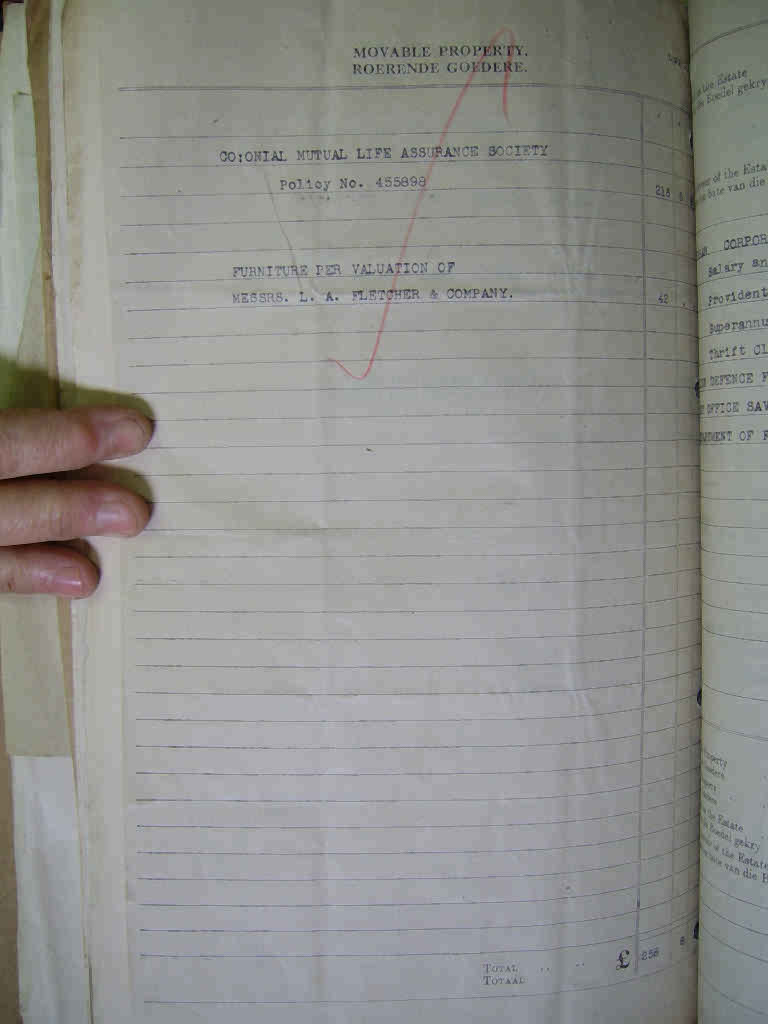 MOVABLE PROPERTY.
ROERENDE GOEDERE.
CO:ONIAL MUTUAL LIFE ASSURANCE SOCIETY
Policy No. 455898
218 8
FURNITURE PER VALUATION OF
MESSRS. L. A. FLETCHER & COMPANY.
42
TOTAL .. .. £ 258 8
TOTAAL
the Estate
Boedel gekry
of the Esta
bate van die
CORPOR
Salary an
Provident
Superannu
Thrift Cl
DEFENCE F
OFFICE SAV
MENT OF R
the Estate
Boedel gekry
of the Estate
van die B